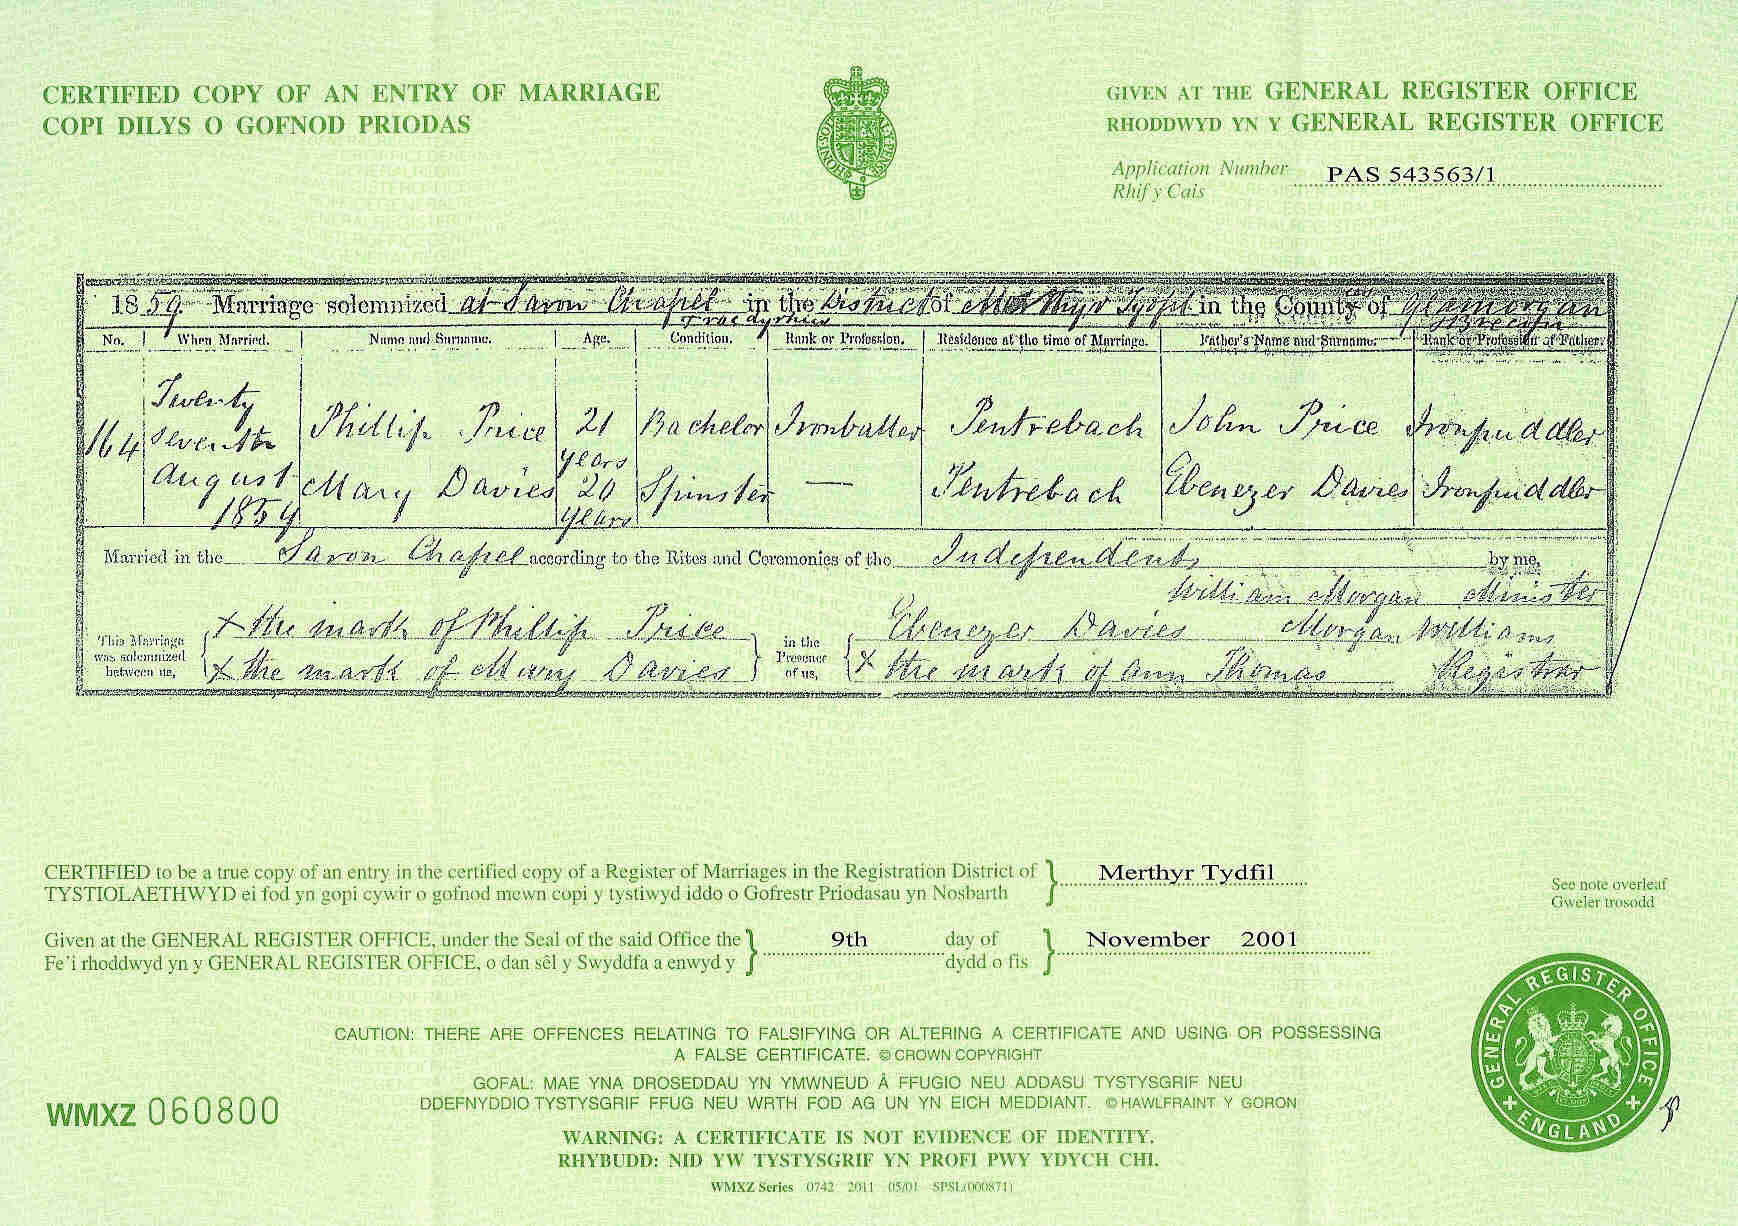 CERTIFIED COPY OF AN ENTRY OF MARRIAGE
COPI DILYS O GOFNOD PRIODAS
GIVEN AT THE GENERAL REGISTER OFFICE
RHODDWYD YN Y GENERAL REGISTER OFFICE
Application Number PAS 543563/1
Rhif y Cais
HONI SOIT
1859. Marriage solemnized at Saron Chapel in the District of Merthyr Tydfil in the County of Glamorgan
No. When Married. Name and Surname. Age. Condition. Rank or Profession. Residence at the time of Marriage. Father's Name and Surname. Rank or Profession of Father.
164 Twenty seventh August 1859 Phillip Price 21 years Bachelor Pentrebach John Price Ironpuddler
Mary Davies 20 years Spinster — Pentrebach Ebenezer Davies Ironpuddler
Married in the Saron Chapel according to the Rites and Ceremonies of the Independents by me,
William Morgan Minister
This Marriage was solemnized between us, X the mark of Phillip Price in the Presence of us, Ebenezer Davies Morgan Williams
X the mark of Mary Davies X the mark of Ann Thomas Registrar
CERTIFIED to be a true copy of an entry in the certified copy of a Register of Marriages in the Registration District of Merthyr Tydfil
TYSTIOLAETHWYD ei fod yn gopi cywir o gofnod mewn copi y tystiwyd iddo o Gofrestr Priodasau yn Nosbarth
See note overleaf
Gweler trosodd
Given at the GENERAL REGISTER OFFICE, under the Seal of the said Office the 9th day of November 2001
Fe'i rhoddwyd yn y GENERAL REGISTER OFFICE, o dan sêl y Swyddfa a enwyd y dydd o fis
CAUTION: THERE ARE OFFENCES RELATING TO FALSIFYING OR ALTERING A CERTIFICATE AND USING OR POSSESSING
A FALSE CERTIFICATE. © CROWN COPYRIGHT
GOFAL: MAE YNA DROSEDDAU YN YMWNEUD Â FFUGIO NEU ADDASU TYSTYSGRIF NEU
DDEFNYDDIO TYSTYSGRIF FFUG NEU WRTH FOD AG UN YN EICH MEDDIANT. © HAWLFRAINT Y GORON
WMXZ 060800
WARNING: A CERTIFICATE IS NOT EVIDENCE OF IDENTITY.
RHYBUDD: NID YW TYSTYSGRIF YN PROFI PWY YDYCH CHI.
WMXZ Series 0742 2011 05/01 SPSL(000871)
GENERAL REGISTER OFFICE
+ ENGLAND +